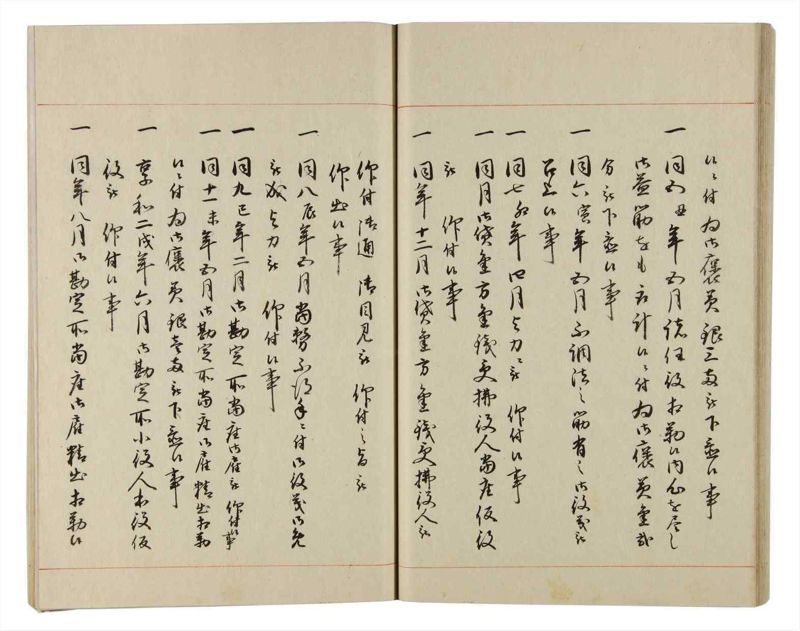 候ニ付為御褒美銀三枚被下置候事
一同五丑年五月諸任役相勤候内心を尽し
御益筋をも取計候ニ付為御褒美金弐
分被下置候事
一同六寅年五月不調法之筋有之御役義被
召上候事
一同七卯年四月与力ニ被 仰付候事
一同月御貸金方金銀更拂役人当座仮役
被 仰付候事
一同年十二月御貸金方金銀更拂役人被
仰付 御通 御目見被 仰付之旨被
仰出候事
一同八辰年五月当勢不得手ニ付御役義御免
被成与力被 仰付候事
一同九巳年二月御勘定所当座御雇被 仰付候事
一同十一未年五月御勘定所当座御雇精出相勤
候ニ付為御褒美銀壱枚被下置候事
一享和二戌年六月御勘定所小役人本役仮
役被 仰付候事
一同年八月御勘定所当座御雇精出相勤候